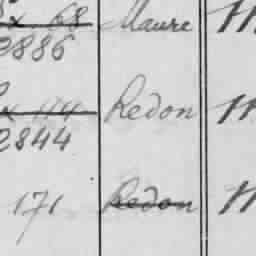 x 68 Maure
2886
x 114 Redon
2844
171 Redon